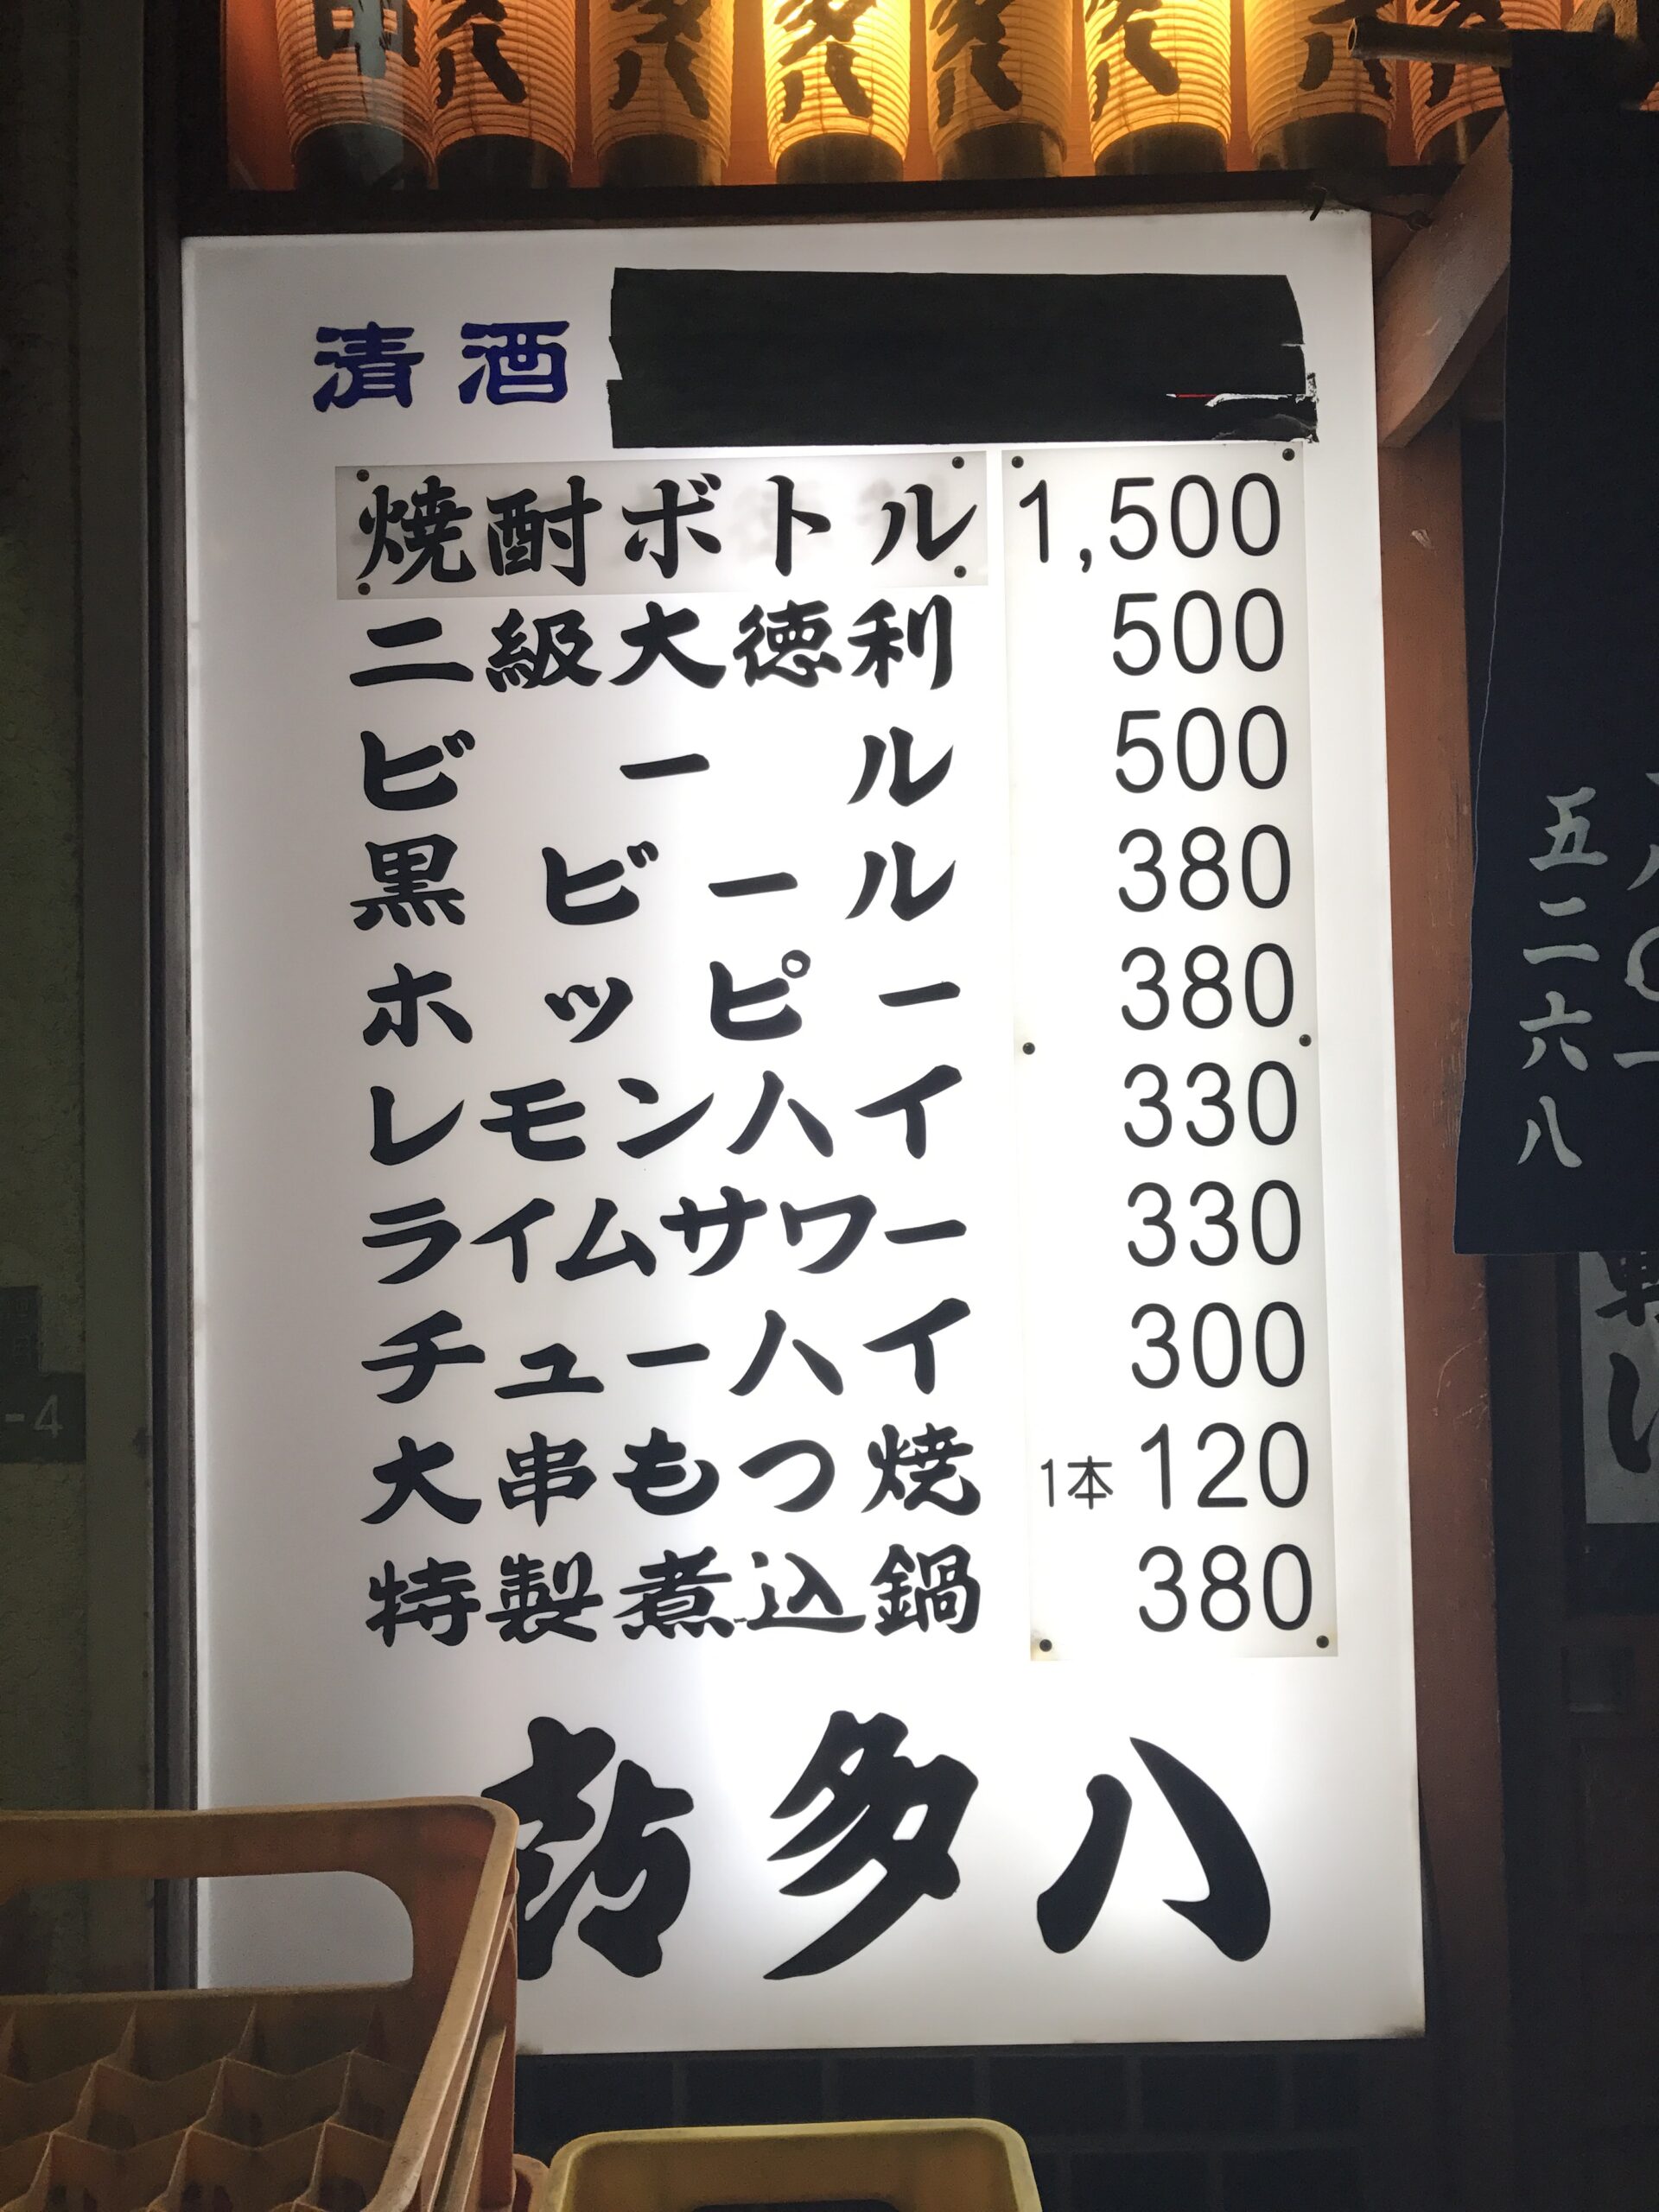 清酒
焼酎ボトル 1,500
二級大徳利 500
ビール 500
黒ビール 380
ホッピー 380
レモンハイ 330
ライムサワー 330
チューハイ 300
大串もつ焼 1本 120
特製煮込鍋 380
多八
五二六八
-4